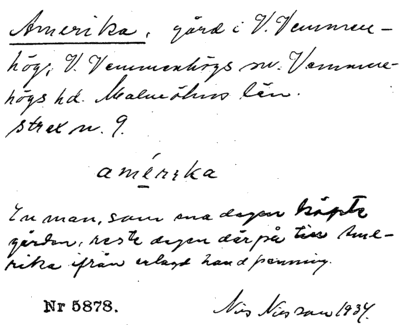 Amerika, gård i V. Vemmen-
hög, V. Vemmenhögs sn. Vemmen-
högs hd. Malmöhus län.
strex n. 9.
amérika
En man, som ena dagen köpte
gården, reste dagen därpå till Ame-
rika ifrån erlagd handpenning.
Nr 5878.
Nils Nilsson 1934.